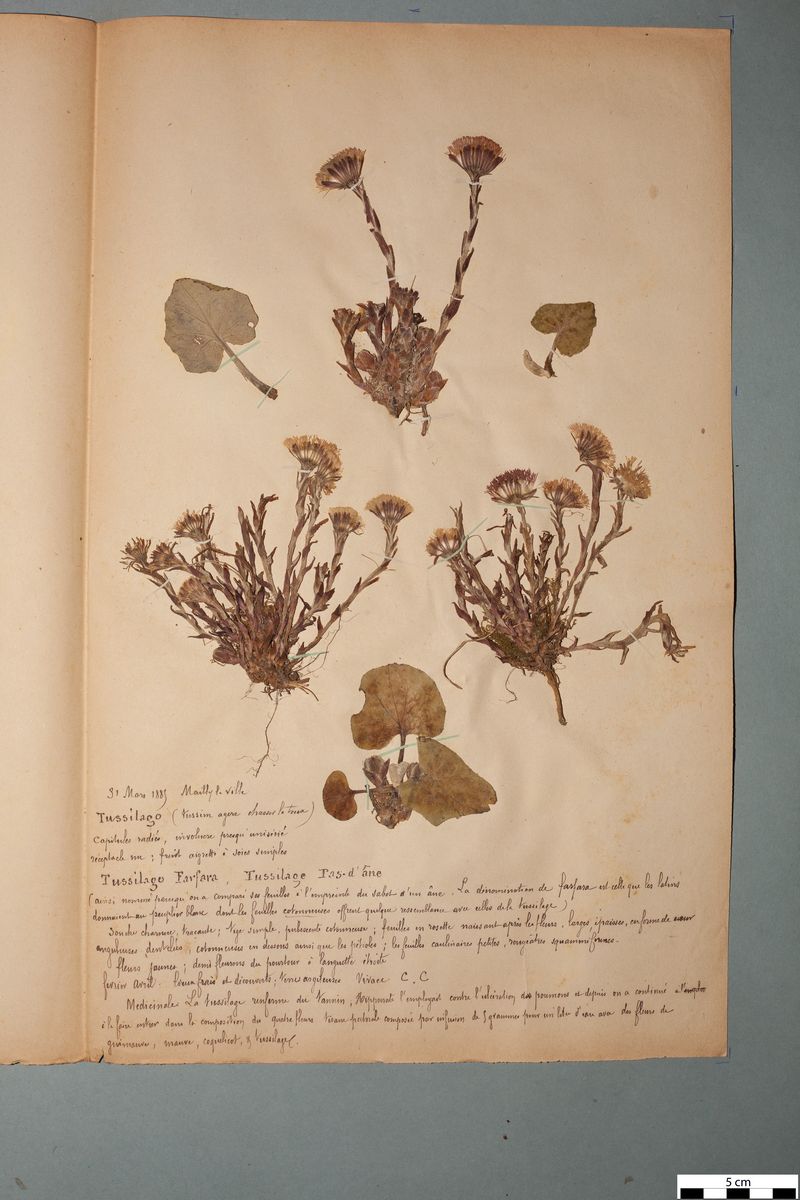 31 Mars 1885 Mailly la ville
Tussilago (tussim agere chasser la toux)
Capitules radiés, involucre presqu'unisérié
réceptacle nu ; fruit aigretté à soies simples
Tussilago Farfara, Tussilage Pas-d'âne
(ainsi nommé parcequ'on a comparé ses feuilles à l'empreinte du sabot d'un âne. La dénomination de farfara est celle que les latins
donnaient au peuplier blanc dont les feuilles cotonneuses offrent quelque ressemblance avec celles de la tussilage)
Souche charnue, tracante ; tige simple, pubescente cotonneuse ; feuilles en rosette naissant après les fleurs, larges épaisses, en forme de cœur
anguleuses dentelées, cotonneuses en dessous ainsi que les pétioles ; les feuilles caulinaires petites, rougeatres squammiformes.
fleurs jaunes ; demi fleurons du pourtour à languette étroite
fevrier avril. Lieux frais et découverts ; terre argileuse Vivace C.C
Medicinale La tussilage renferme du tannin, Hippocrate l'employait contre l'ulcération des poumons et depuis on a continué
à la faire entrer dans la composition du quatre fleurs tisane pectorale composée par infusion de 5 grammes pour un litre d'eau avec des fleurs de
guimauve, mauve, coquelicot, & tussilage.
5 cm